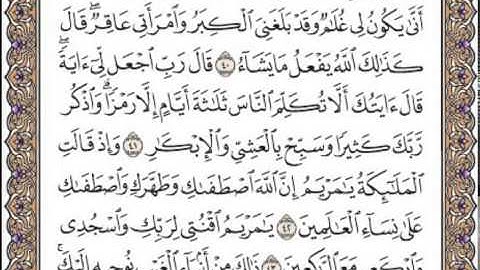 أَنَّىٰ يَكُونُ لِى غُلَٰمٌ وَقَدْ بَلَغَنِىَ ٱلْكِبَرُ وَٱمْرَأَتِى عَاقِرٌ ۖ قَالَ
كَذَٰلِكَ ٱللَّهُ يَفْعَلُ مَا يَشَآءُ ٤٠ قَالَ رَبِّ ٱجْعَل لِّىٓ ءَايَةً ۖ
قَالَ ءَايَتُكَ أَلَّا تُكَلِّمَ ٱلنَّاسَ ثَلَٰثَةَ أَيَّامٍ إِلَّا رَمْزًا ۗ وَٱذْكُر
رَّبَّكَ كَثِيرًا وَسَبِّحْ بِٱلْعَشِىِّ وَٱلْإِبْكَٰرِ ٤١ وَإِذْ قَالَتِ
ٱلْمَلَٰٓئِكَةُ يَٰمَرْيَمُ إِنَّ ٱللَّهَ ٱصْطَفَىٰكِ وَطَهَّرَكِ وَٱصْطَفَىٰكِ
عَلَىٰ نِسَآءِ ٱلْعَٰلَمِينَ ٤٢ يَٰمَرْيَمُ ٱقْنُتِى لِرَبِّكِ وَٱسْجُدِى
وَٱرْكَعِى مَعَ ٱلرَّٰكِعِينَ ٤٣ ذَٰلِكَ مِنْ أَنۢبَآءِ ٱلْغَيْبِ نُوحِيهِ إِلَيْكَ ۚ